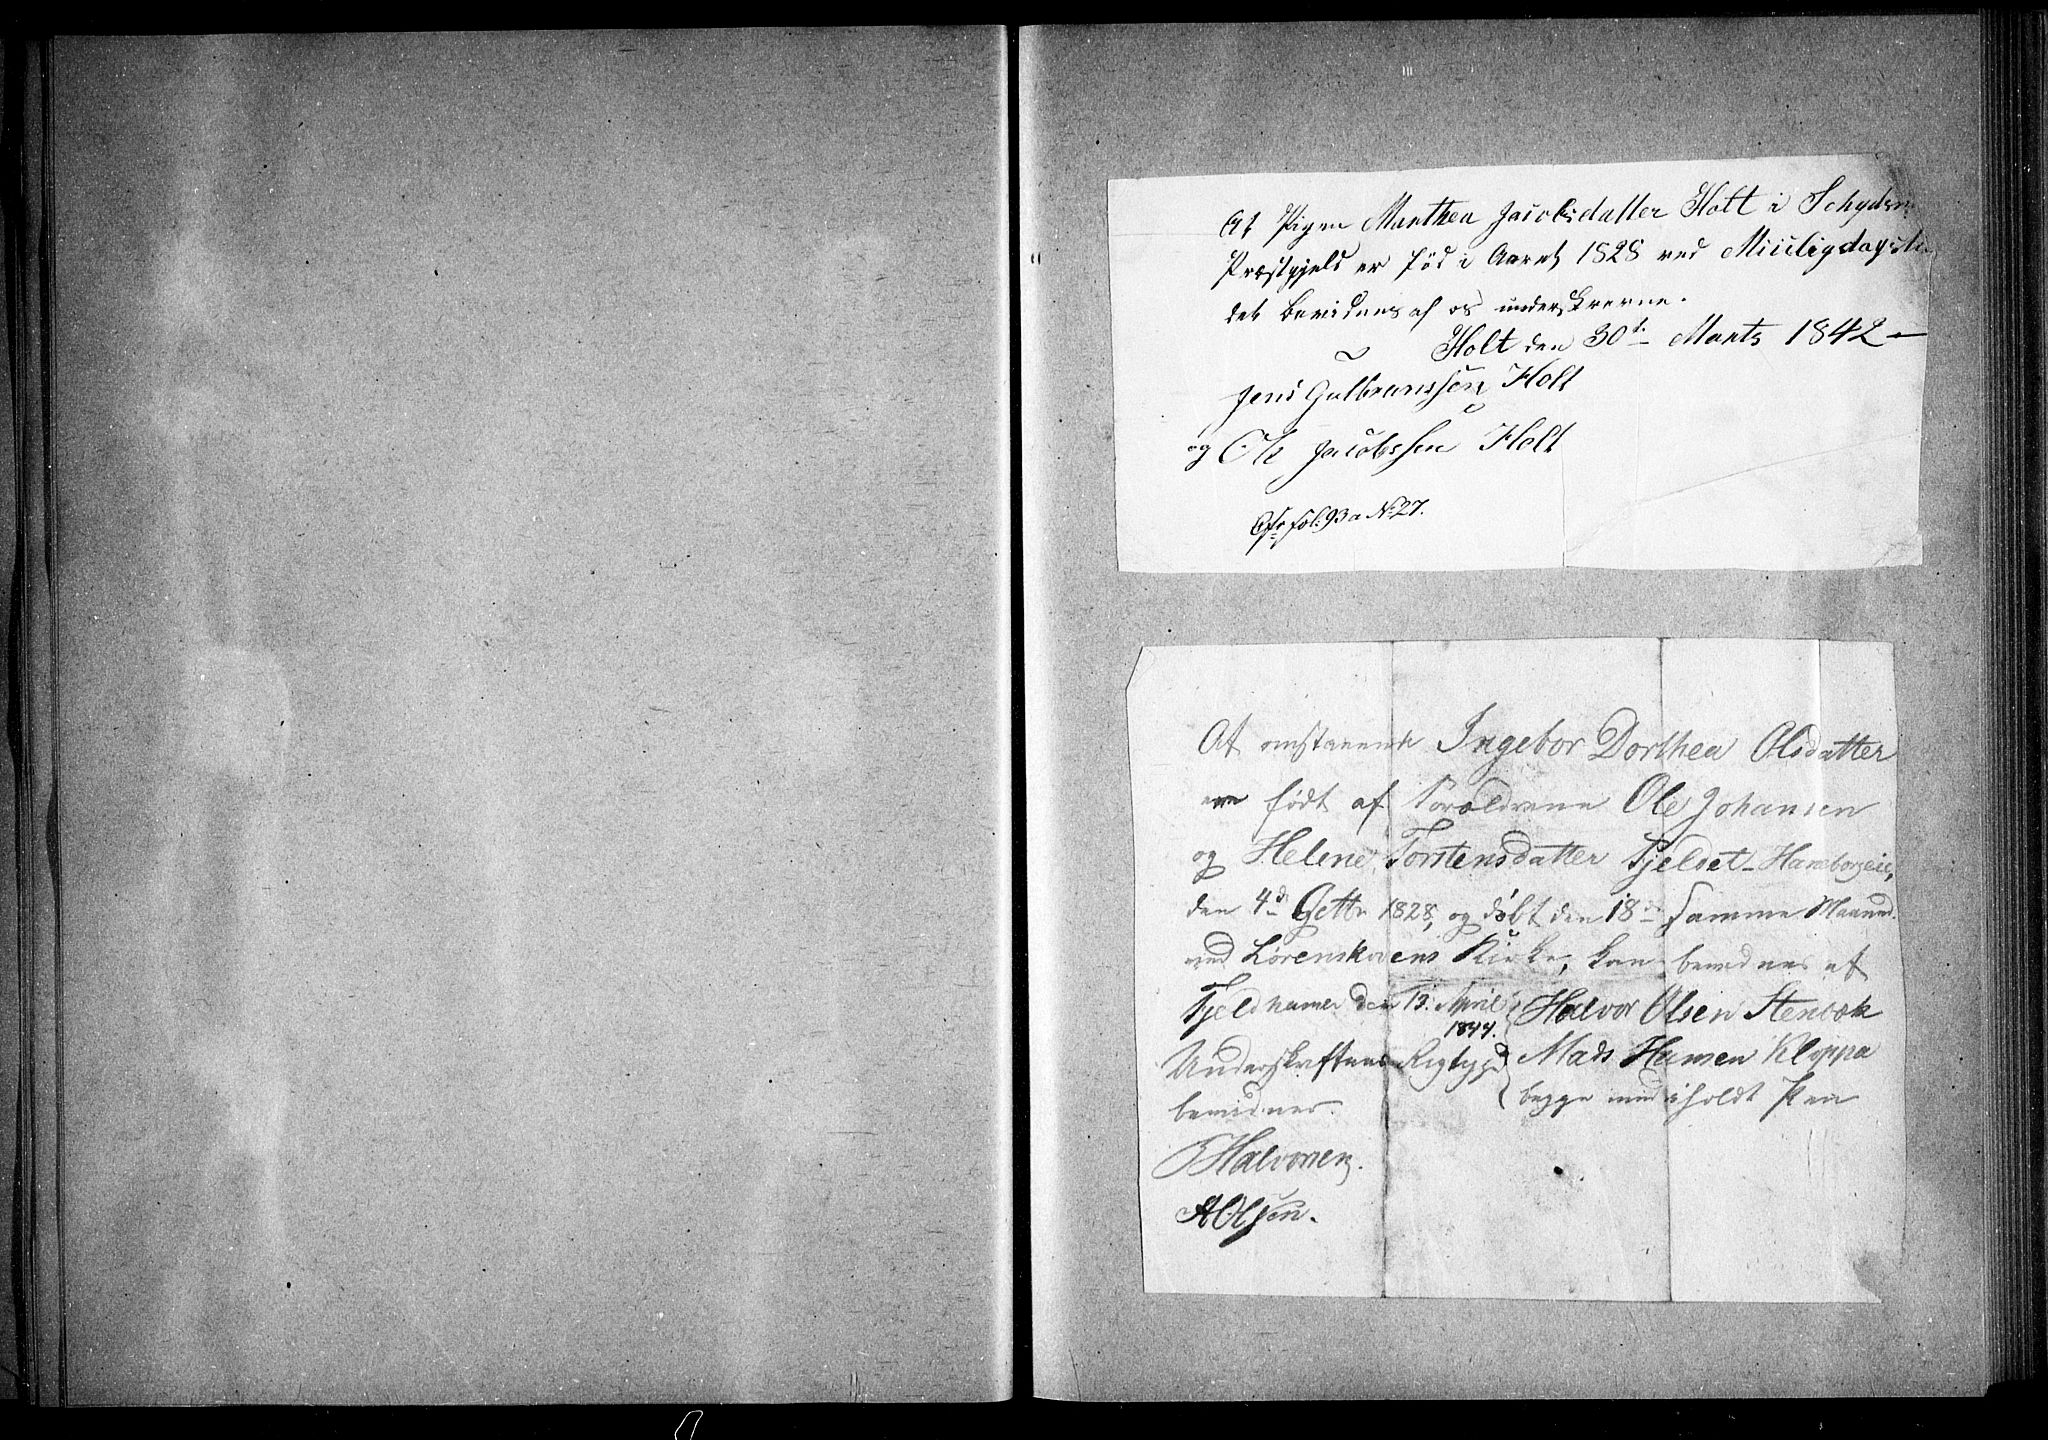 At Pigen Marthea Jacobsdatter Holt i Schydsm
Præstgjeld er föd i Aaret 1828 ved Miiligdagsti
det bevidnes af os underskrevne.
Holt den 30t Marts 1842
Jens Gulbranssen Holt
og Ole Jacobssen Holt
Cfr fol: 93a No 27.
At omstaaende Ingebor Dorthea Olsdatter
er født af Forældrene Ole Johansen
og Helene Torstensdatter Fjeldet Haneborgeie,
den 4de 1828, og døbt den 18de samme Maaned
ved Lørenskovens Kirke, kan bevidnes af
Fjeldhamer den 12. April 1844. Halvor Olsen Stenbæk
Underskriftens Rigtighed Mads Hansen Kloppa
bevidner. begge med iholdt Pen
Halvorsen.
AOlsen.